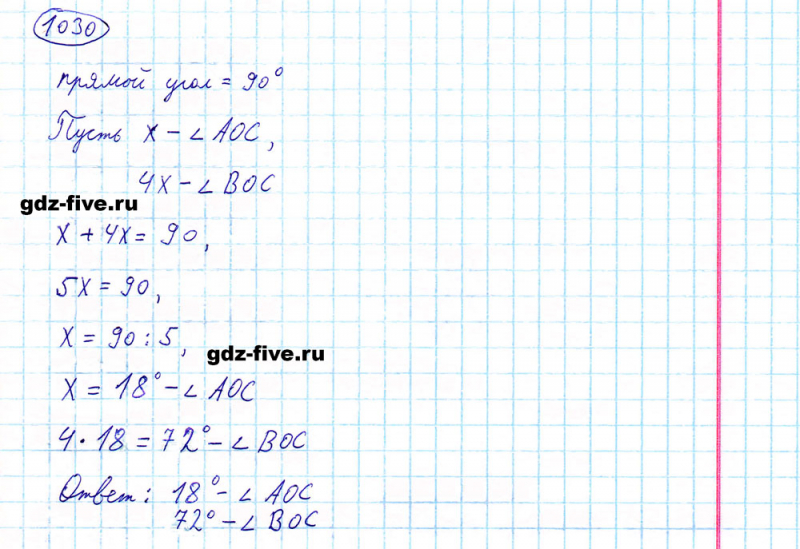 1030
прямой угол = 90°
Пусть x - ∠ AOC,
4x - ∠ BOC
gdz-five.ru
x + 4x = 90,
5x = 90,
x = 90 : 5,
gdz-five.ru
x = 18° - ∠ AOC
4 · 18 = 72° - ∠ BOC
Ответ: 18° - ∠ AOC
72° - ∠ BOC